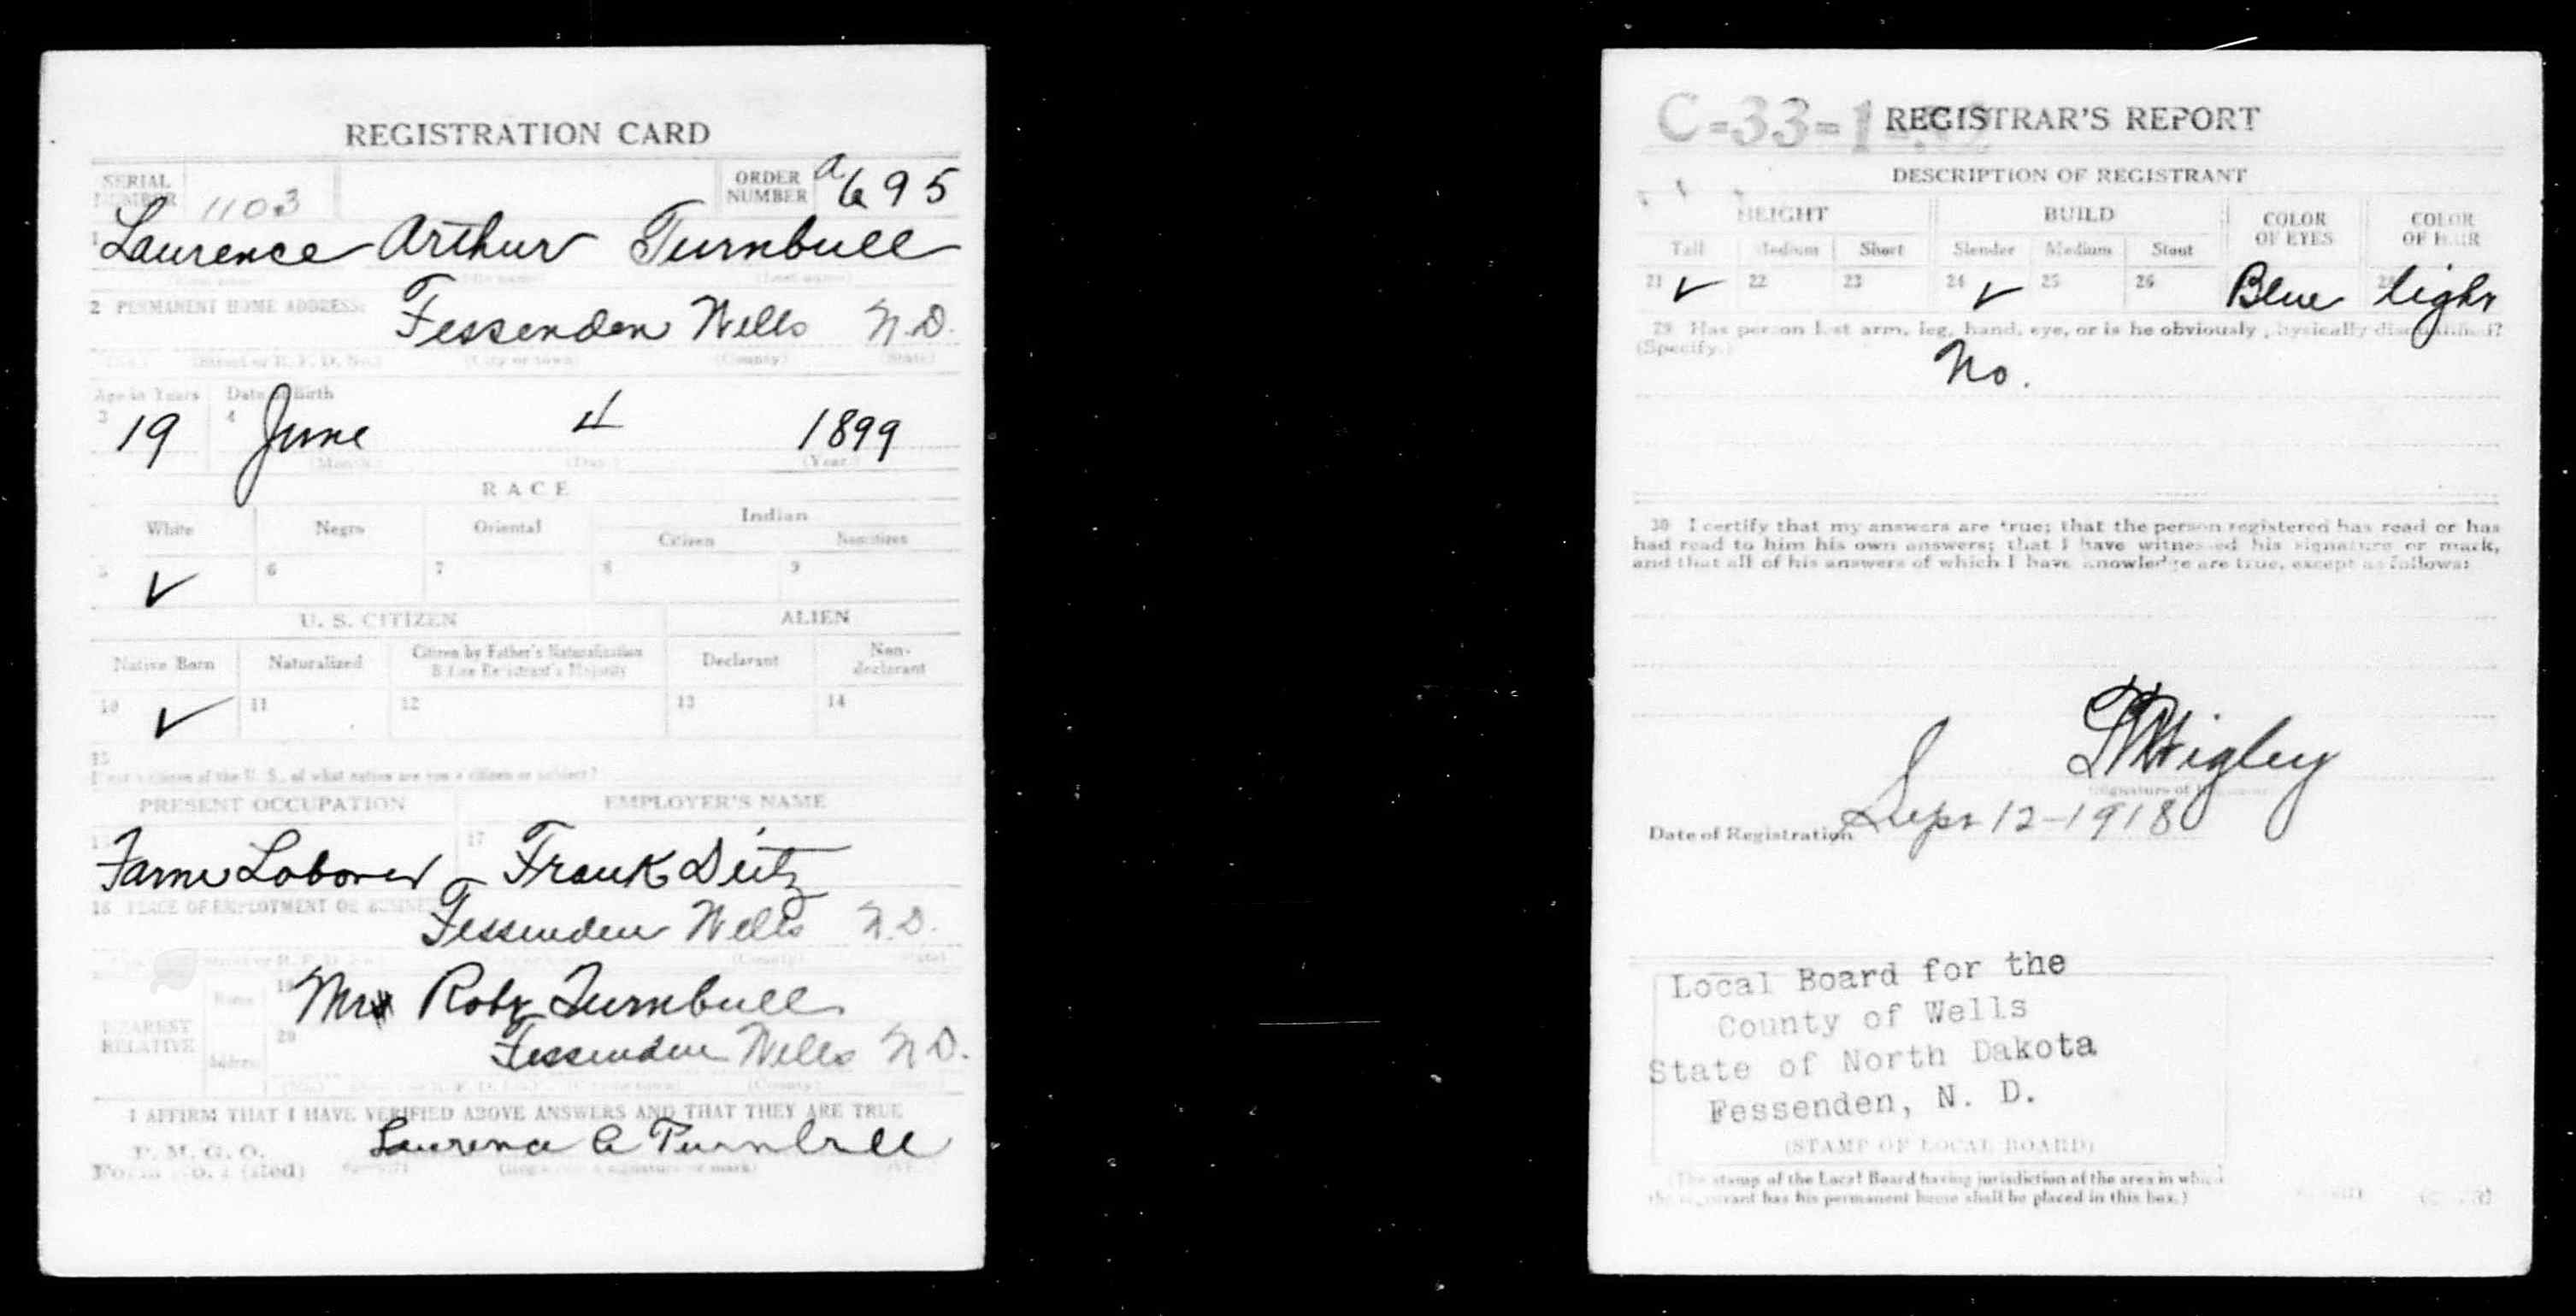 REGISTRATION CARD
SERIAL NUMBER 1103 ORDER NUMBER a 695
1 Laurence Arthur Turnbull
2 PERMANENT HOME ADDRESS:
Fessenden Wells N.D.
(City or town) (County) (State)
Age in Years Date of Birth
3 19 4 June 4 1899
(Month) (Day) (Year)
RACE
White Negro Oriental Indian
Citizen Noncitizen
5 ✓ 6 7 8 9
U. S. CITIZEN ALIEN
Native Born Naturalized Citizen by Father's Naturalization Before Registrant's Majority Declarant Non-declarant
10 ✓ 11 12 13 14
15
If not a citizen of the U. S., of what nation are you a citizen or subject?
PRESENT OCCUPATION EMPLOYER'S NAME
Farm Laborer 17 Frank Deitz
18 PLACE OF EMPLOYMENT OR BUSINESS
Fessenden Wells N.D.
(County) (State)
NEAREST RELATIVE
Name 19 Mrs Robt Turnbull
Address 20 Fessenden Wells N.D.
I AFFIRM THAT I HAVE VERIFIED ABOVE ANSWERS AND THAT THEY ARE TRUE
P. M. G. O.
Laurence A Turnbull
C-33-1- REGISTRAR'S REPORT
DESCRIPTION OF REGISTRANT
HEIGHT BUILD COLOR OF EYES COLOR OF HAIR
Tall Medium Short Slender Medium Stout
21 ✓ 22 23 24 ✓ 25 26 Blue light
29 Has person lost arm, leg, hand, eye, or is he obviously physically disqualified?
(Specify.)
No.
30 I certify that my answers are true; that the person registered has read or has
had read to him his own answers; that I have witnessed his signature or mark,
and that all of his answers of which I have knowledge are true, except as follows:
Higley
Date of Registration Sept 12-1918
Local Board for the
County of Wells
State of North Dakota
Fessenden, N. D.
(STAMP OF LOCAL BOARD)
(The stamp of the Local Board having jurisdiction of the area in which
the registrant has his permanent home shall be placed in this box.)